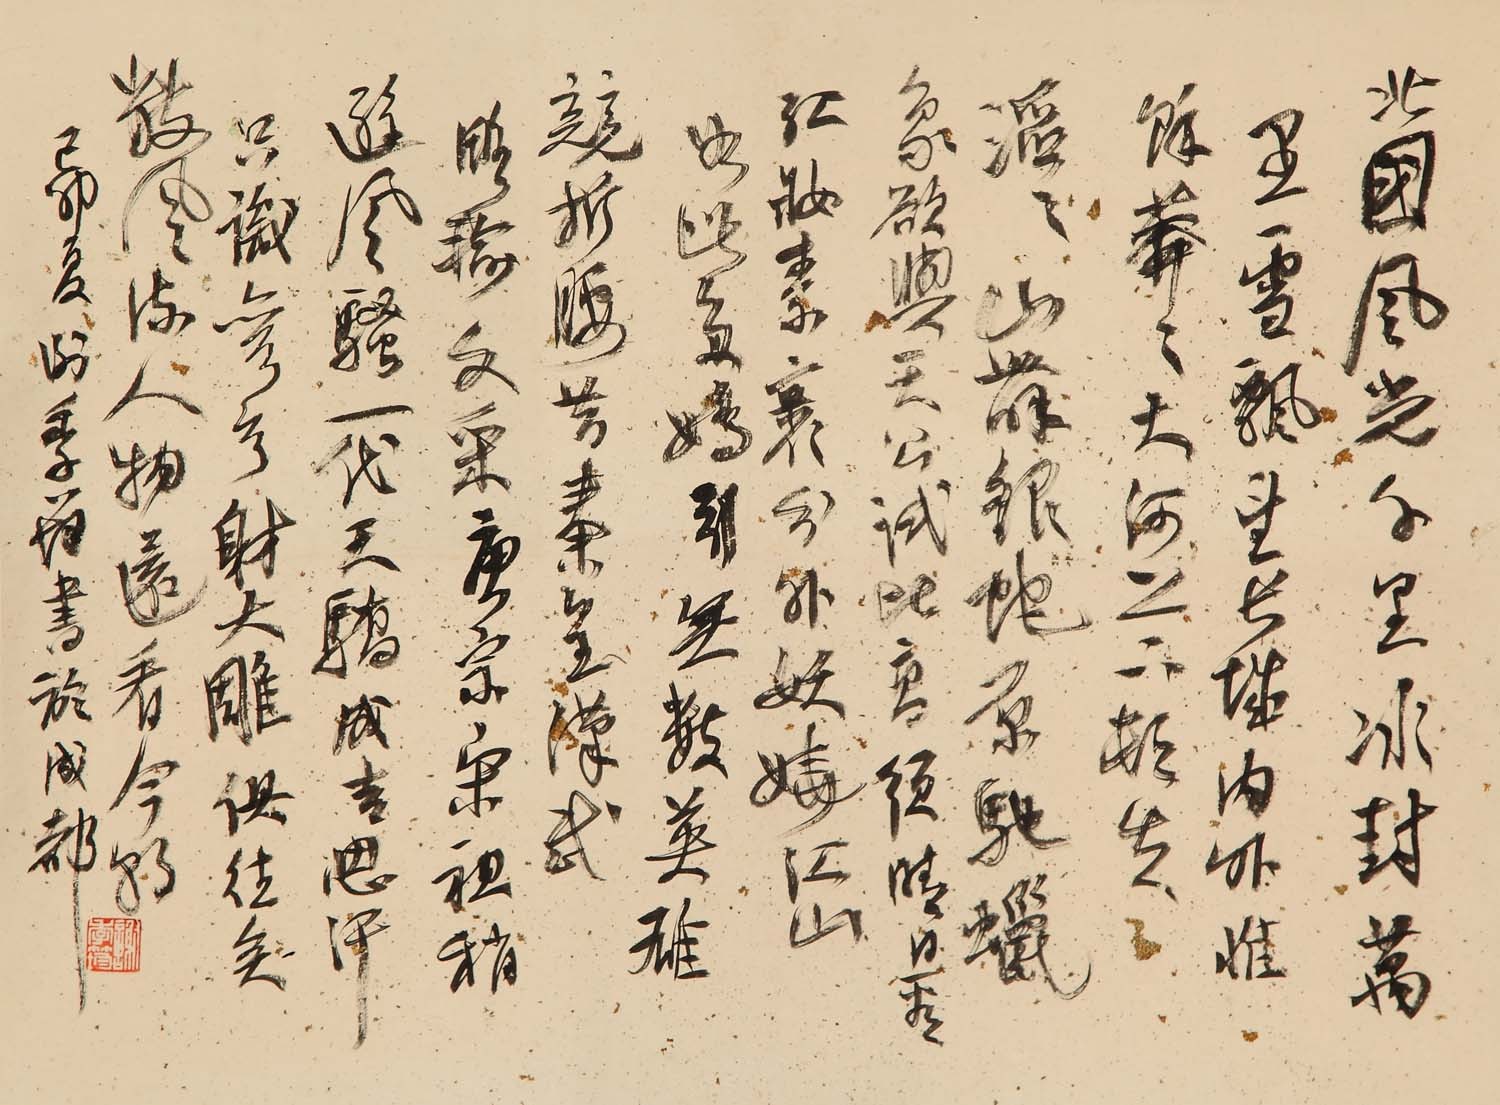 北國風光千里冰封萬
里雪飄望長城內外惟
餘莽々大河上下頓失
滔々山舞銀蛇原馳蠟
象欲與天公試比高須晴日看
紅妝素裹分外妖嬈江山
如此多嬌引無數英雄
競折腰昔秦皇漢武
略輸文采唐宗宋祖稍
遜風騷一代天驕成吉思汗
只識彎弓射大雕俱往矣
數風流人物還看今朝
己卯夏謝季筠書於成都
謝季筠